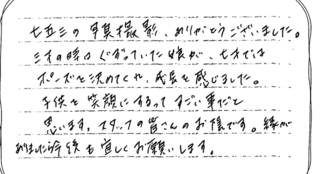 七五三の写真撮影、ありがとうございました。
三才の時はぐずっていた娘が、七才では
ポーズを決めてくれ、成長を感じました。
子供を笑顔にするってすごい事だと
思います。スタッフの皆さんのお様です。縁が
ありましたら今後も宜しくお願いします。